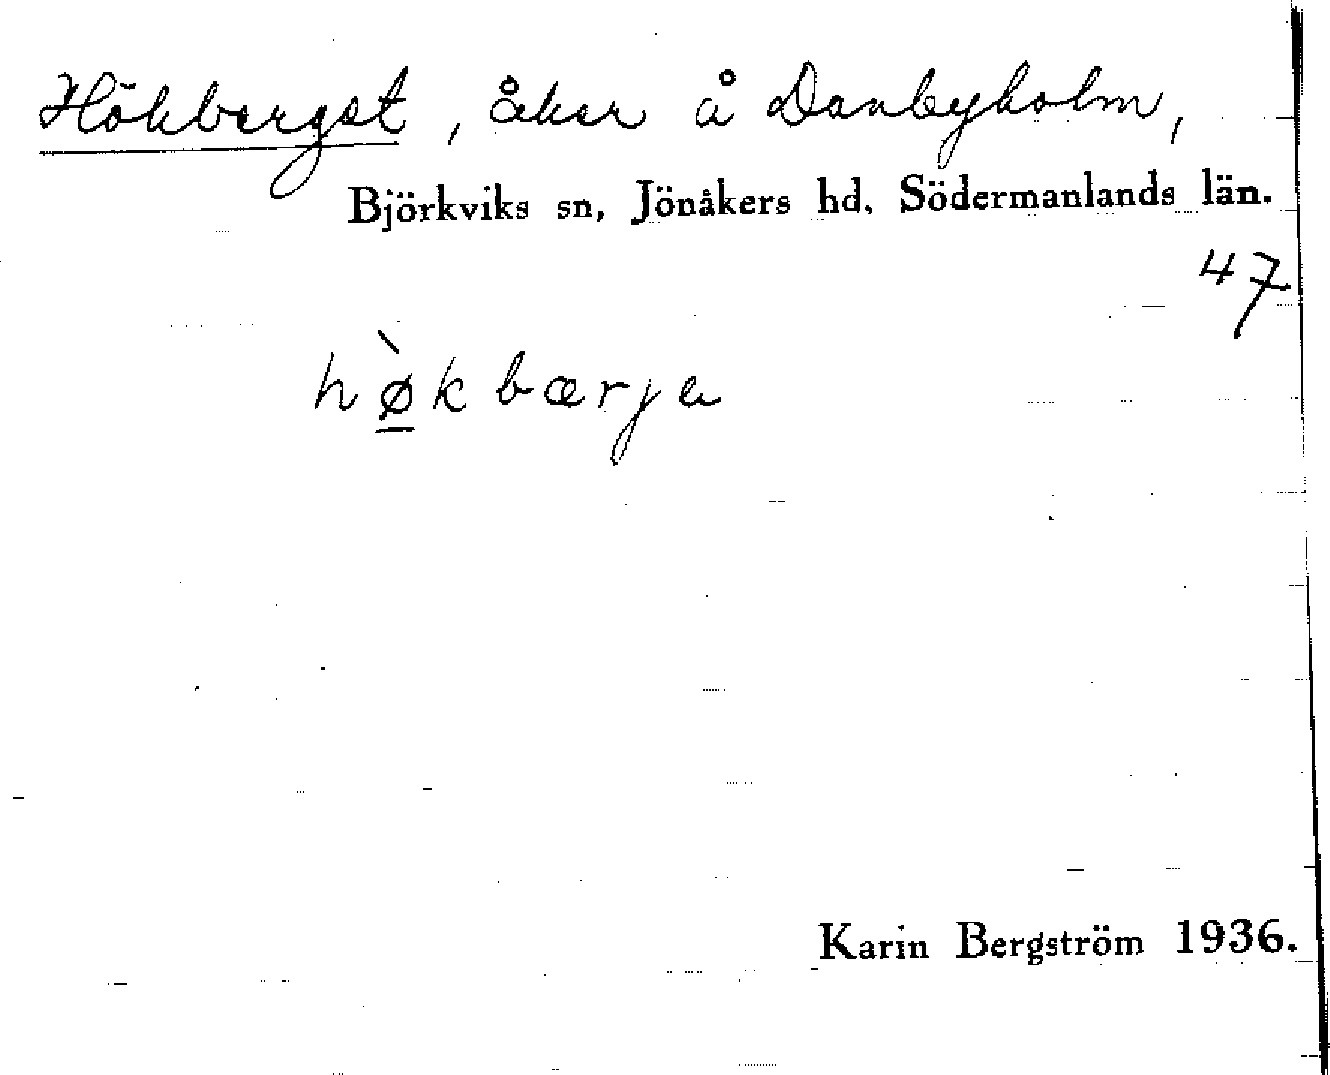 Hökberget, åker å Danbyholm,
Björkviks sn, Jönåkers hd, Södermanlands län.
47
hø̖̀kbærjα
Karin Bergström 1936.